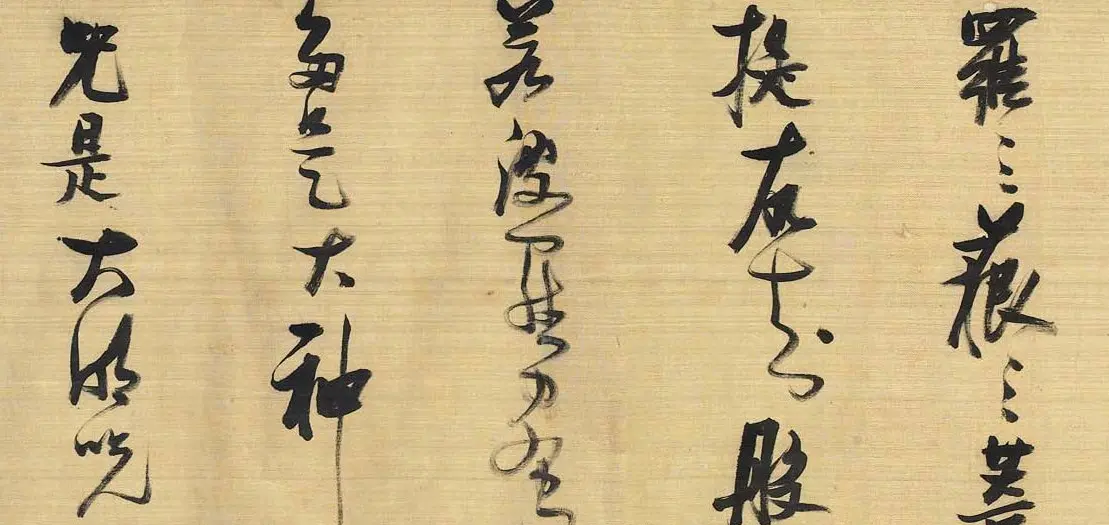 羅三藐三菩
提故知般
若波羅蜜
多是大神
咒是大明咒